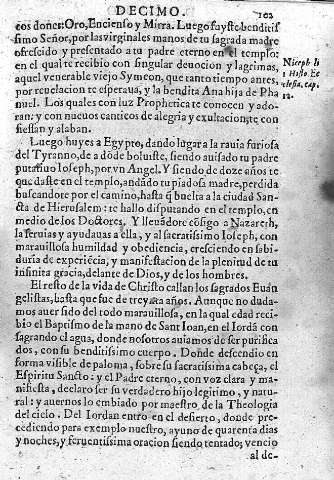 DECIMO. 102
cos dones: Oro, Encienso y Mirra. Luego fuyste benditis
simo Señor, por las virginales manos de tu sagrada madre
ofrescido y presentado a tu padre eterno en el templo:
en el qual te recibio con singular deuocion y lagrimas,
aquel venerable viejo Symeon, que tanto tiempo antes,
por reuelacion te esperaua, y la bendita Ana hija de Pha
nuel. Los quales con luz Prophetica te conocen y ado-
ran: y con nueuos canticos de alegria y exultacion, te con
fiessan y alaban.
Niceph li
1 Histo. Ec
clesia. cap.
12.
Luego huyes a Egypto, dando lugar a la rauia furiosa
del Tyranno, de a dõde boluiste, siendo auisado tu padre
putatiuo Ioseph, por vn Angel. Y siendo de doze años te
quedaste en el templo, andãdo tu piadosa madre, perdida
buscandote por el camino, hasta q̃ buelta a la ciudad San-
cta de Hierusalem: te hallo disputando en el templo, en
medio de los Doctores. Y lleuãdote cõsigo a Nazareth,
la seruias y ayudauas a ella, y al sacratissimo Ioseph, con
marauillosa humildad y obediencia, cresciendo en sabi-
duria de experiẽcia, y manifestacion de la plenitud de tu
infinita gracia, delante de Dios, y de los hombres.
El resto de la vida de Christo callan los sagrados Euã
gelistas, hasta que fue de treynta años. Aunque no duda-
mos auer sido del todo marauillosa, en la qual edad reci-
bio el Baptismo de la mano de Sant Ioan, en el Iordã con
sagrando el agua, donde nosotros auiamos de ser purifica
dos, con su benditissimo cuerpo. Donde descendio en
forma visible de paloma, sobre su sacratissima cabeça, el
Espiritu Sancto: y el Padre eterno, con voz clara y ma-
nifiesta, declaro ser su verdadero hijo legitimo, y natu-
ral: y auernos lo embiado por maestro de la Theologia
del cielo. Del Iordan entro en el desierto, donde pre-
cediendo para exemplo nuestro, ayuno de quarenta dias
y noches, y feruentissima oracion siendo tentado, vencio
al de-